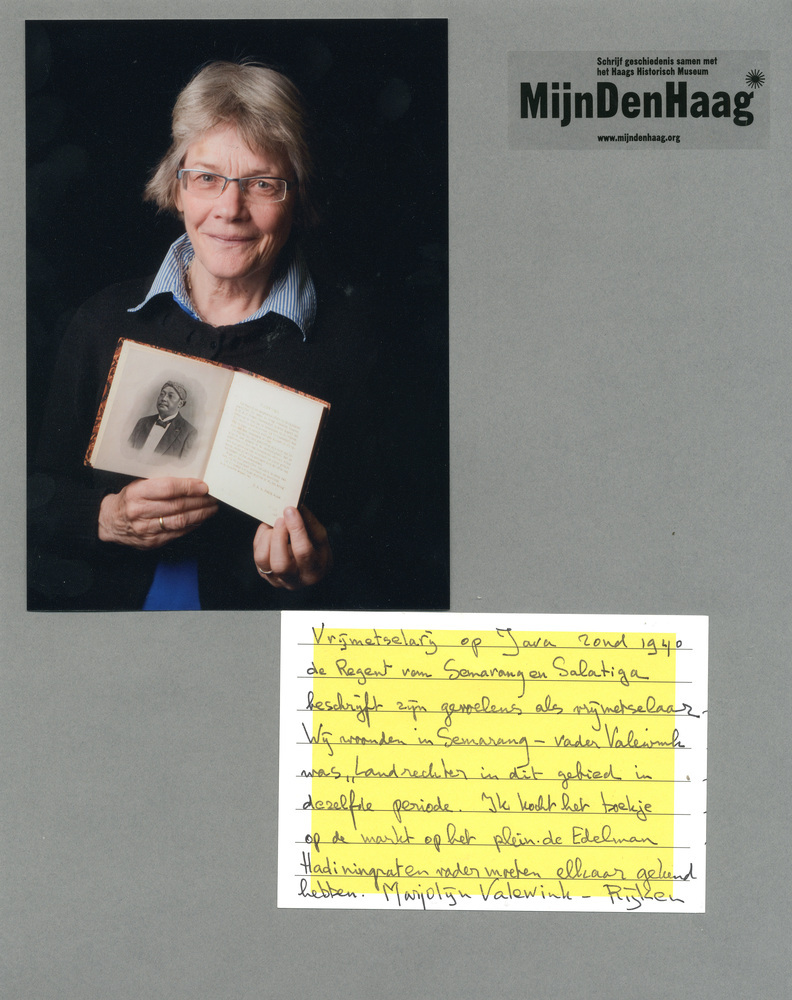 Schrijf geschiedenis samen met
het Haags Historisch Museum
MijnDenHaag
www.mijndenhaag.org
Vrijmetselarij op Java rond 1940
de Regent van Semarang en Salatiga
beschrijft zijn gevoelens als vrijmetselaar.
Wij woonden in Semarang - vader Valewink
was „Landrechter in dit gebied in
dezelfde periode. Ik kocht het boekje
op de markt op het plein. de Edelman
Hadiningrat en vader moeten elkaar gekend
hebben. Marjolijn Valewink - Rijken